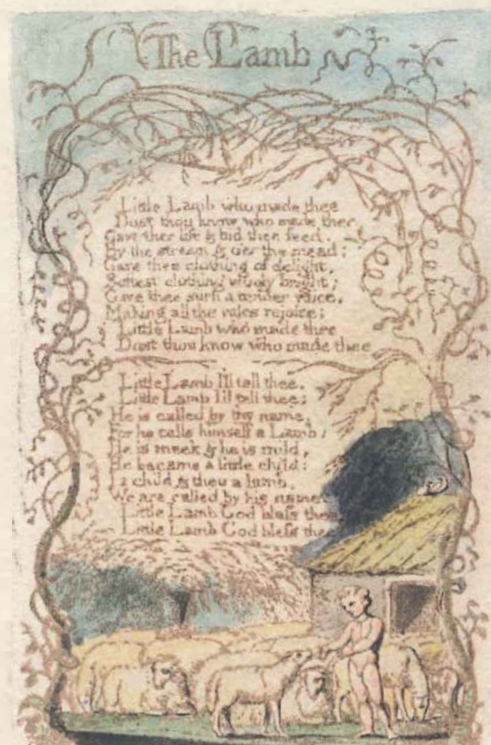 The Lamb
Little Lamb who made thee
Dost thou know who made thee
Gave thee life & bid thee feed.
By the stream & o'er the mead;
Gave thee clothing of delight,
Softest clothing wooly bright;
Gave thee such a tender voice,
Making all the vales rejoice;
Little Lamb who made thee
Dost thou know who made thee
Little Lamb I'll tell thee,
Little Lamb I'll tell thee;
He is called by thy name,
For he calls himself a Lamb;
He is meek & he is mild,
He became a little child;
I a child & thou a lamb,
We are called by his name.
Little Lamb God bless thee
Little Lamb God bless thee